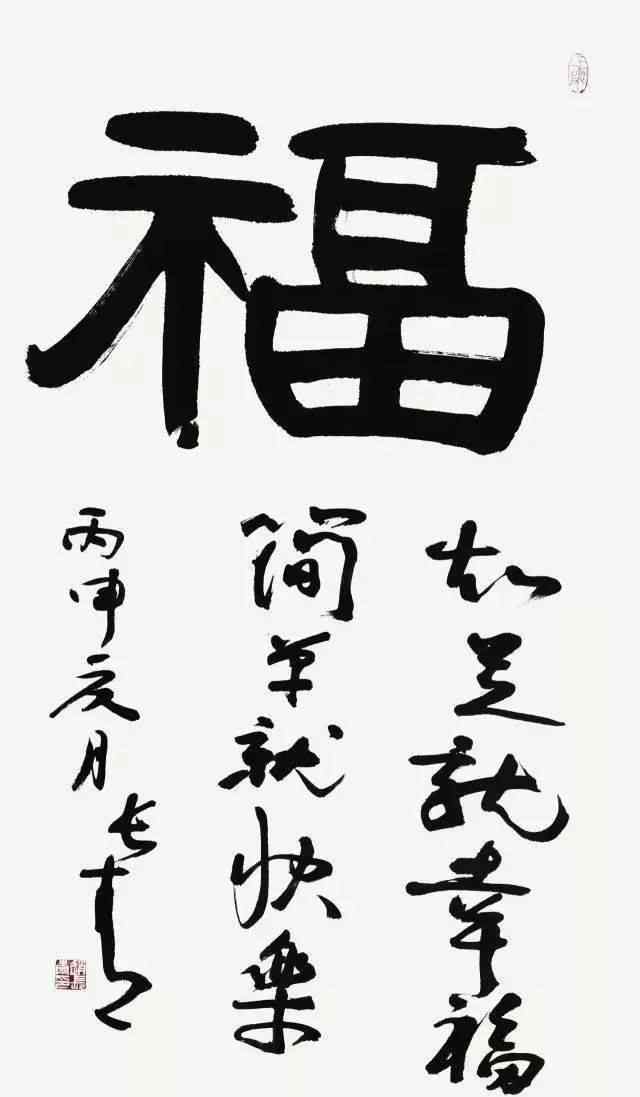 福
知足就幸福
简单就快樂
丙申夏月 长青